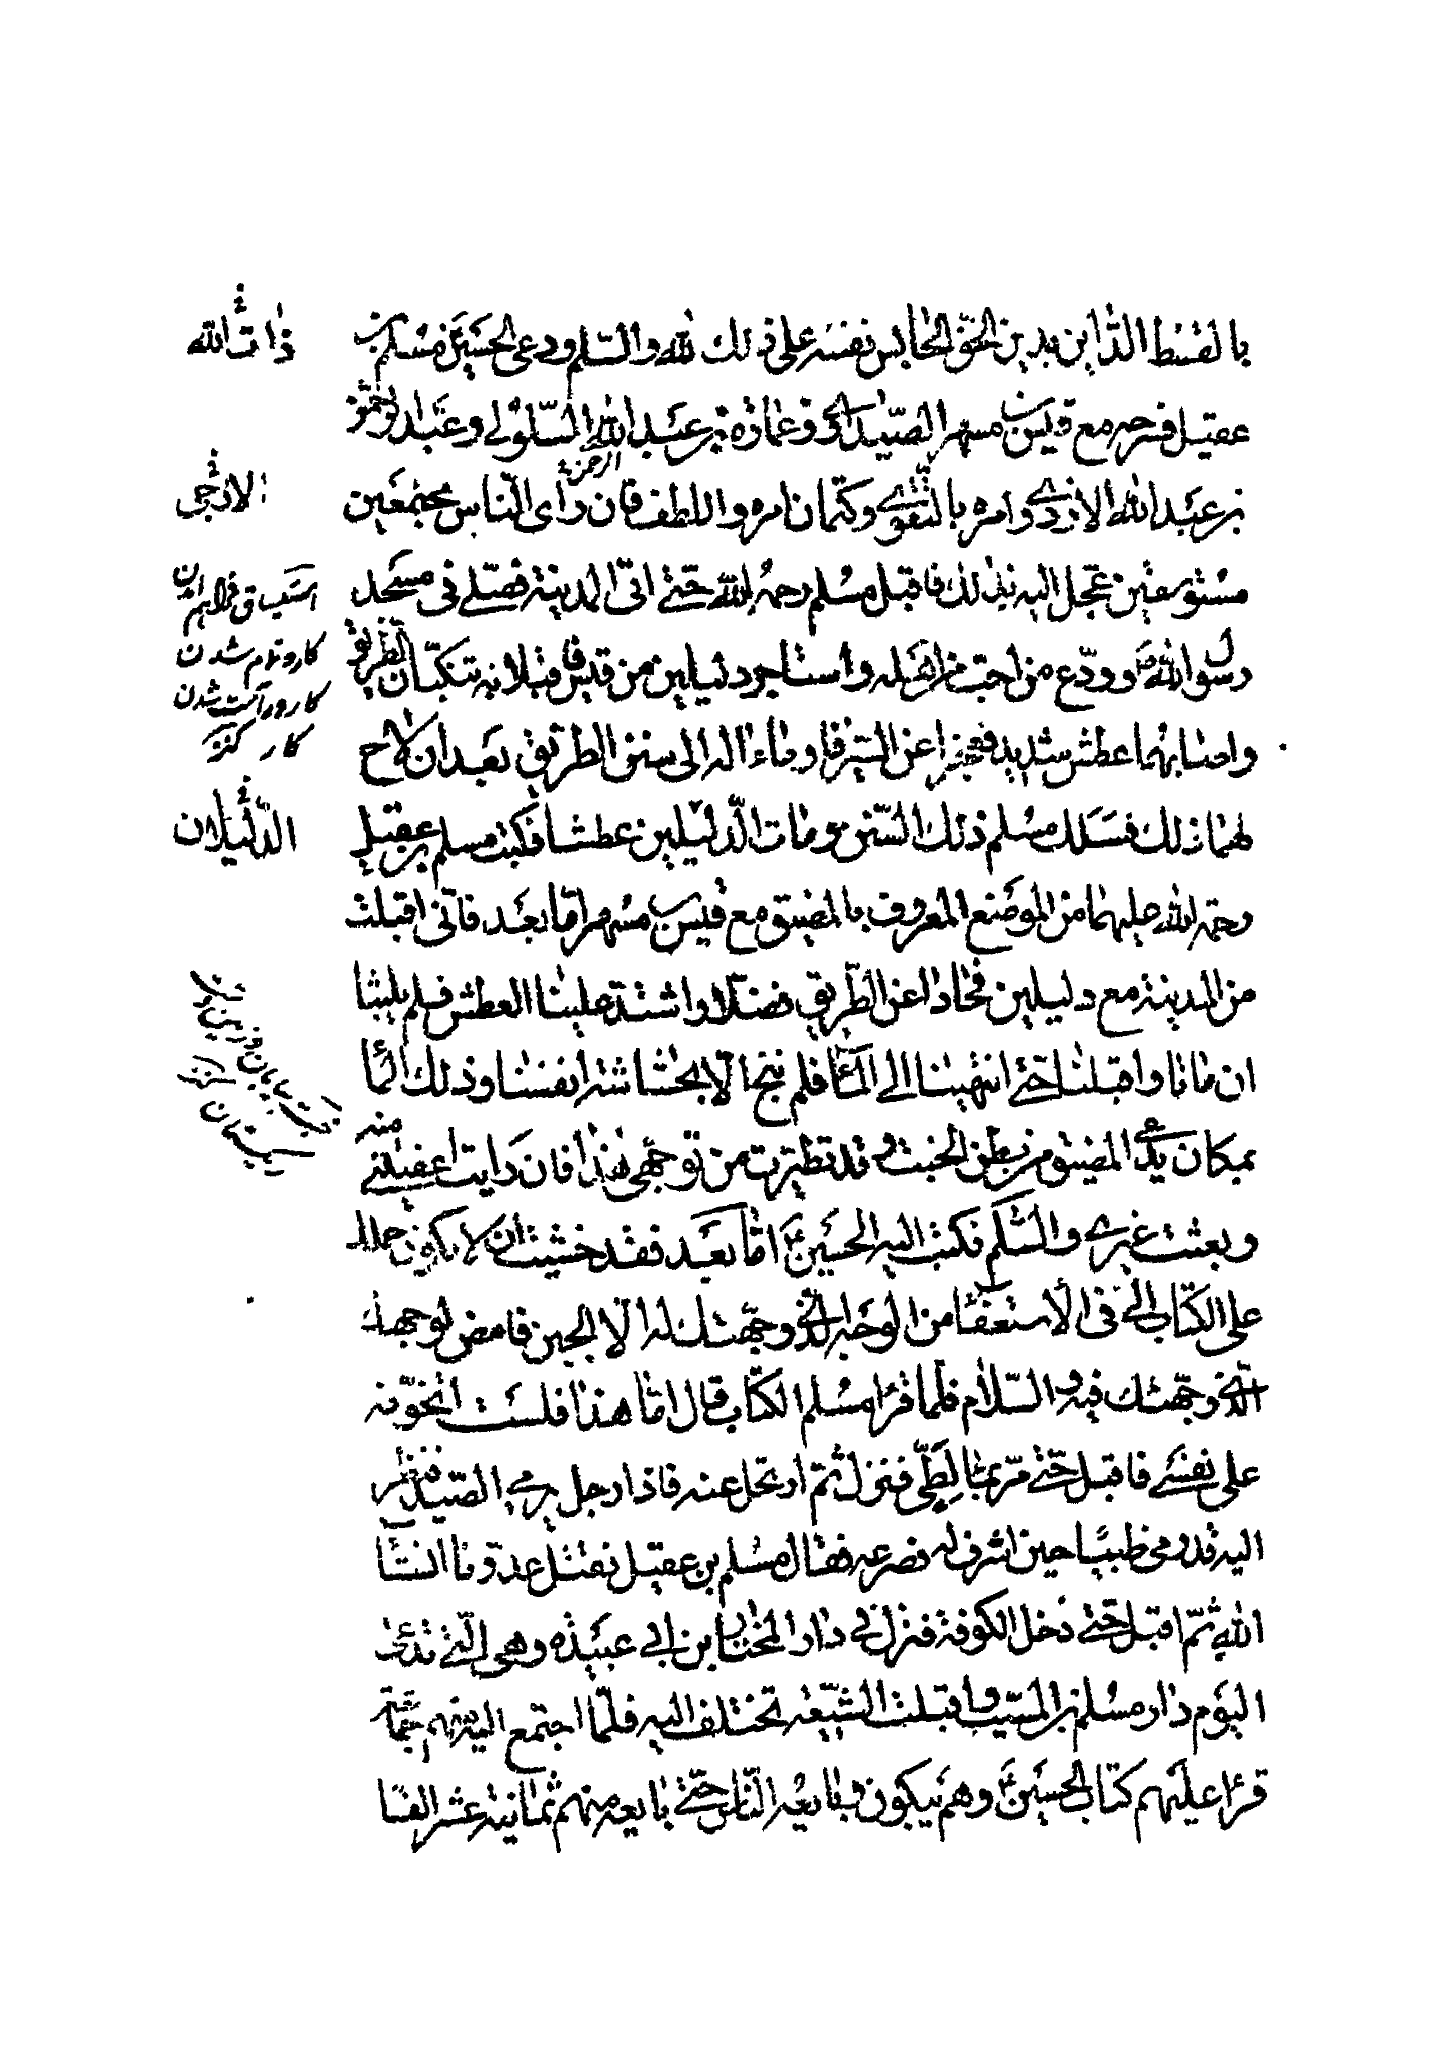 بالقسط الداین بدین الحق الحابس نفسه علی ذلك لله والسلم ودعی الحسین مسلم بن
عقیل فسرحه مع قیس بن مسهر الصیداوی وعمارة بن عبد الله السلولی وعبد الرحمن
بن عبد الله الازدی وامره بالتقوی وکتمان امره واللطف فان رای الناس مجتمعین
مستوسقین عجل الیه بذلك فاقبل مسلم رحمه الله حتی اتی المدینة فصلی فی مسجد
رسول الله ص وودع من احب من اهله واستاجر دلیلین من قیس فاقبلا به یتنکبان الطریق
واصابهما عطش شدید فعجزا عن السیر فاوماءا له الی سنن الطریق بعد ان لاح
لهما ذلك فسلك مسلم ذلك السنن ومات الدلیلین عطشا فکتب مسلم بن عقیل
رحمة الله علیهما من الموضع المعروف بالمضیق مع قیس بن مسهر اما بعد فانی اقبلت
من المدینة مع دلیلین فحادا عن الطریق فضلا واشتد علینا العطش فلم یلبثا
ان ماتا واقبلنا حتی انتهینا الی الماء فلم ننج الا بحشاشة انفسنا وذلك الماء
بمکان یدعی المضیق من بطن الخبت وقد تطیرت من توجهی هذا فان رایت اعفیتنی منه
وبعثت غیری والسلم فکتب الیه الحسین ع اما بعد فقد خشیت ان لا یکون حملك
علی الکتاب الی فی الاستعفاء من الوجه الذی وجهتك له الا الجبن فامض لوجهك
الذی وجهتك فیه والسلام فلما قرا مسلم الکتاب قال اما هذا فلست اتخوفه
علی نفسی فاقبل حتی مر بماء لطی فنزل ثم ارتحل عنه فاذا رجل یرمی الصید فنظر
الیه قد رمی ظبیا حین اشرف له فصرعه فقال مسلم بن عقیل نقتل عدونا انشاء
الله ثم اقبل حتی دخل الکوفة فنزل فی دار المختار بن ابی عبیدة وهی التی تدعی
الیوم دار مسلم بن المسیب واقبلت الشیعة تختلف الیه فلما اجتمع الیه منهم جماعة
قرا علیهم کتاب الحسین ع وهم یبکون وبایعه الناس حتی بایعه منهم ثمانیة عشر الفا
ذات الله
الارحبی
استیساق فراهم امدن
کار و تمام شدن
کار و راست شدن
کار
الدلیلان